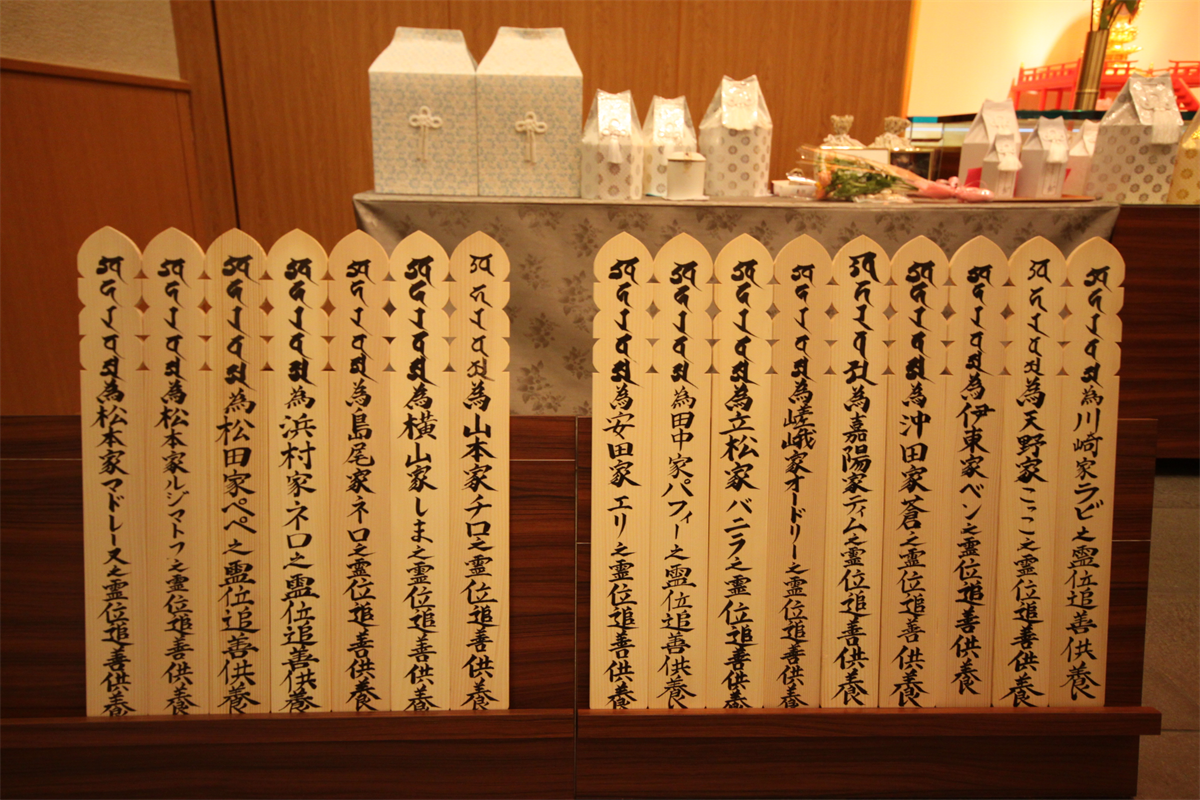 為川崎家ラビ之霊位追善供養
為天野家こっこ之霊位追善供養
為伊東家ベン之霊位追善供養
為沖田家蒼之霊位追善供養
為嘉陽家ティム之霊位追善供養
為嵯峨家オードリー之霊位追善供養
為立松家バニラ之霊位追善供養
為田中家パフィー之霊位追善供養
為安田家エリ之霊位追善供養
為山本家チロ之霊位追善供養
為横山家しま之霊位追善供養
為島尾家ネロ之霊位追善供養
為浜村家ネロ之霊位追善供養
為松田家ペペ之霊位追善供養
為松本家ルジマトフ之霊位追善供養
為松本家マドレーヌ之霊位追善供養